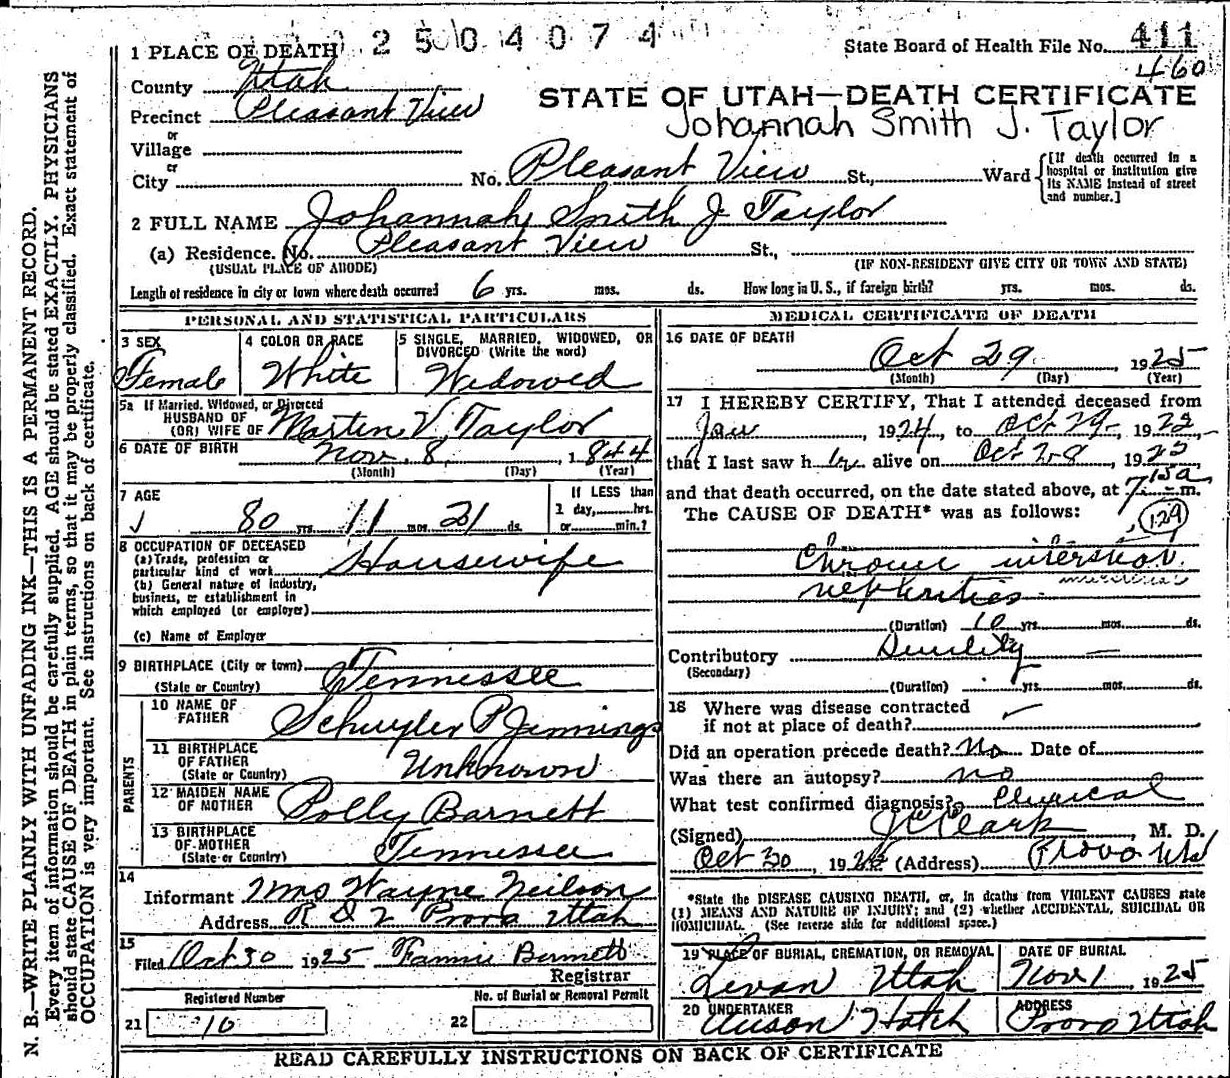 2504074
State Board of Health File No. 411
460
1 PLACE OF DEATH
County Utah
Precinct Pleasant View
STATE OF UTAH—DEATH CERTIFICATE
Johannah Smith J. Taylor
or
Village
or
City No. Pleasant View St., Ward
[If death occurred in a hospital or institution give its NAME instead of street and number.]
2 FULL NAME Johannah Smith J Taylor
(a) Residence. No. Pleasant View St.,
(USUAL PLACE OF ABODE) (IF NON-RESIDENT GIVE CITY OR TOWN AND STATE)
Length of residence in city or town where death occurred 6 yrs. mos. ds. How long in U. S., if foreign birth? yrs. mos. ds.
PERSONAL AND STATISTICAL PARTICULARS
3 SEX
Female
4 COLOR OR RACE
White
5 SINGLE, MARRIED, WIDOWED, OR
DIVORCED (Write the word)
Widowed
5a If Married, Widowed, or Divorced
HUSBAND OF
(OR) WIFE OF Martin V. Taylor
6 DATE OF BIRTH Nov. 8, 1844
(Month) (Day) (Year)
7 AGE
80 yrs. 11 mos. 21 ds.
If LESS than
1 day, hrs.
or min.?
8 OCCUPATION OF DECEASED
(a) Trade, profession or
particular kind of work Housewife
(b) General nature of industry,
business, or establishment in
which employed (or employer)
(c) Name of Employer
9 BIRTHPLACE (City or town)
(State or Country) Tennessee
PARENTS
10 NAME OF
FATHER Schuyler P Jennings
11 BIRTHPLACE
OF FATHER
(State or Country) Unknown
12 MAIDEN NAME
OF MOTHER Polly Barnett
13 BIRTHPLACE
OF MOTHER
(State or Country) Tennessee
14
Informant Mrs Wayne Neilson
Address R D 2 Provo Utah
15
Filed Oct 30 1925
Registrar
Registered Number
21 10
No. of Burial or Removal Permit
22
MEDICAL CERTIFICATE OF DEATH
16 DATE OF DEATH
Oct 29, 1925
(Month) (Day) (Year)
17 I HEREBY CERTIFY, That I attended deceased from
Jan, 1924, to Oct 29, 1925,
that I last saw her alive on Oct 28, 1925
and that death occurred, on the date stated above, at 7 15 a m.
The CAUSE OF DEATH* was as follows:
129
Chronic interstitial
nephrities
(Duration) 10 yrs. mos. ds.
Contributory
(Secondary)
(Duration) yrs. mos. ds.
18 Where was disease contracted
if not at place of death?
Did an operation precede death? No Date of
Was there an autopsy? no
What test confirmed diagnosis?
(Signed) Clark, M. D.
Oct 30, 192 (Address) Provo Utah
*State the DISEASE CAUSING DEATH, or, in deaths from VIOLENT CAUSES state
(1) MEANS AND NATURE OF INJURY; and (2) whether ACCIDENTAL, SUICIDAL OR
HOMICIDAL. (See reverse side for additional space.)
19 PLACE OF BURIAL, CREMATION, OR REMOVAL
Levan Utah
DATE OF BURIAL
Nov 1 1925
20 UNDERTAKER
Hatch
ADDRESS
Provo Utah
READ CAREFULLY INSTRUCTIONS ON BACK OF CERTIFICATE
N. B.—WRITE PLAINLY WITH UNFADING INK—THIS IS A PERMANENT RECORD.
Every item of information should be carefully supplied. AGE should be stated EXACTLY. PHYSICIANS
should state CAUSE OF DEATH in plain terms, so that it may be properly classified. Exact statement of
OCCUPATION is very important. See instructions on back of certificate.